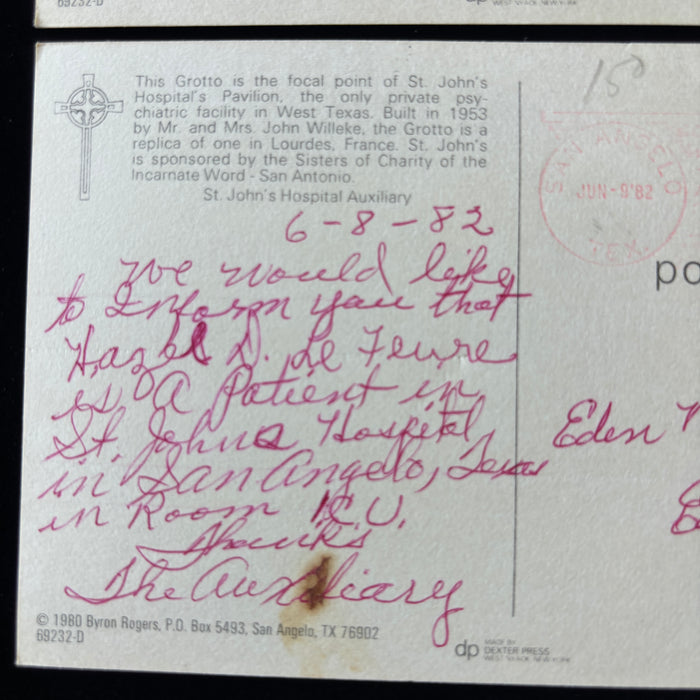 69232-D
dp WEST NYACK, NEW YORK
This Grotto is the focal point of St. John's
Hospital's Pavilion, the only private psy-
chiatric facility in West Texas. Built in 1953
by Mr. and Mrs. John Willeke, the Grotto is a
replica of one in Lourdes, France. St. John's
is sponsored by the Sisters of Charity of the
Incarnate Word - San Antonio.
St. John's Hospital Auxiliary
6-8-82
We would like
to Inform you that
Hazel D. Le Fevre
is A Patient in
St. Johns Hospital,
in San Angelo, Texas
in Room I.C.U.
Thanks
The Auxiliary
© 1980 Byron Rogers, P.O. Box 5493, San Angelo, TX 76902
69232-D
dp MADE BY
DEXTER PRESS
WEST NYACK, NEW YORK
150
SAN ANGELO
JUN-9'82
TEX.
po
Eden